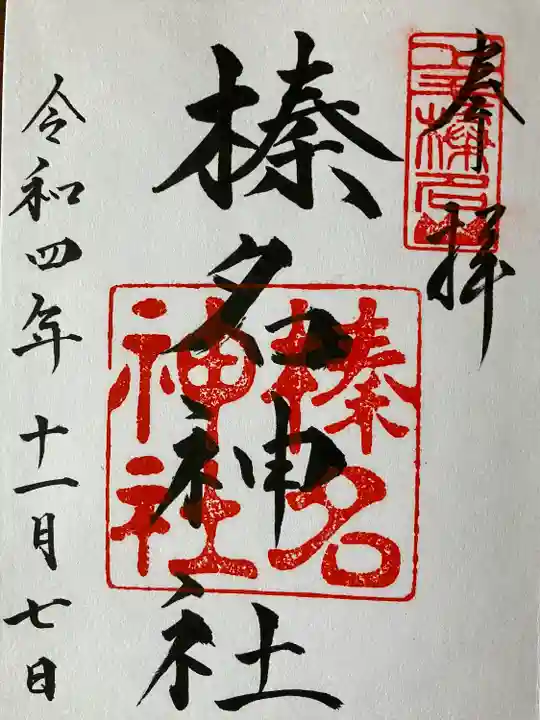 奉拝
榛名神社
令和四年十一月七日
榛名
神社